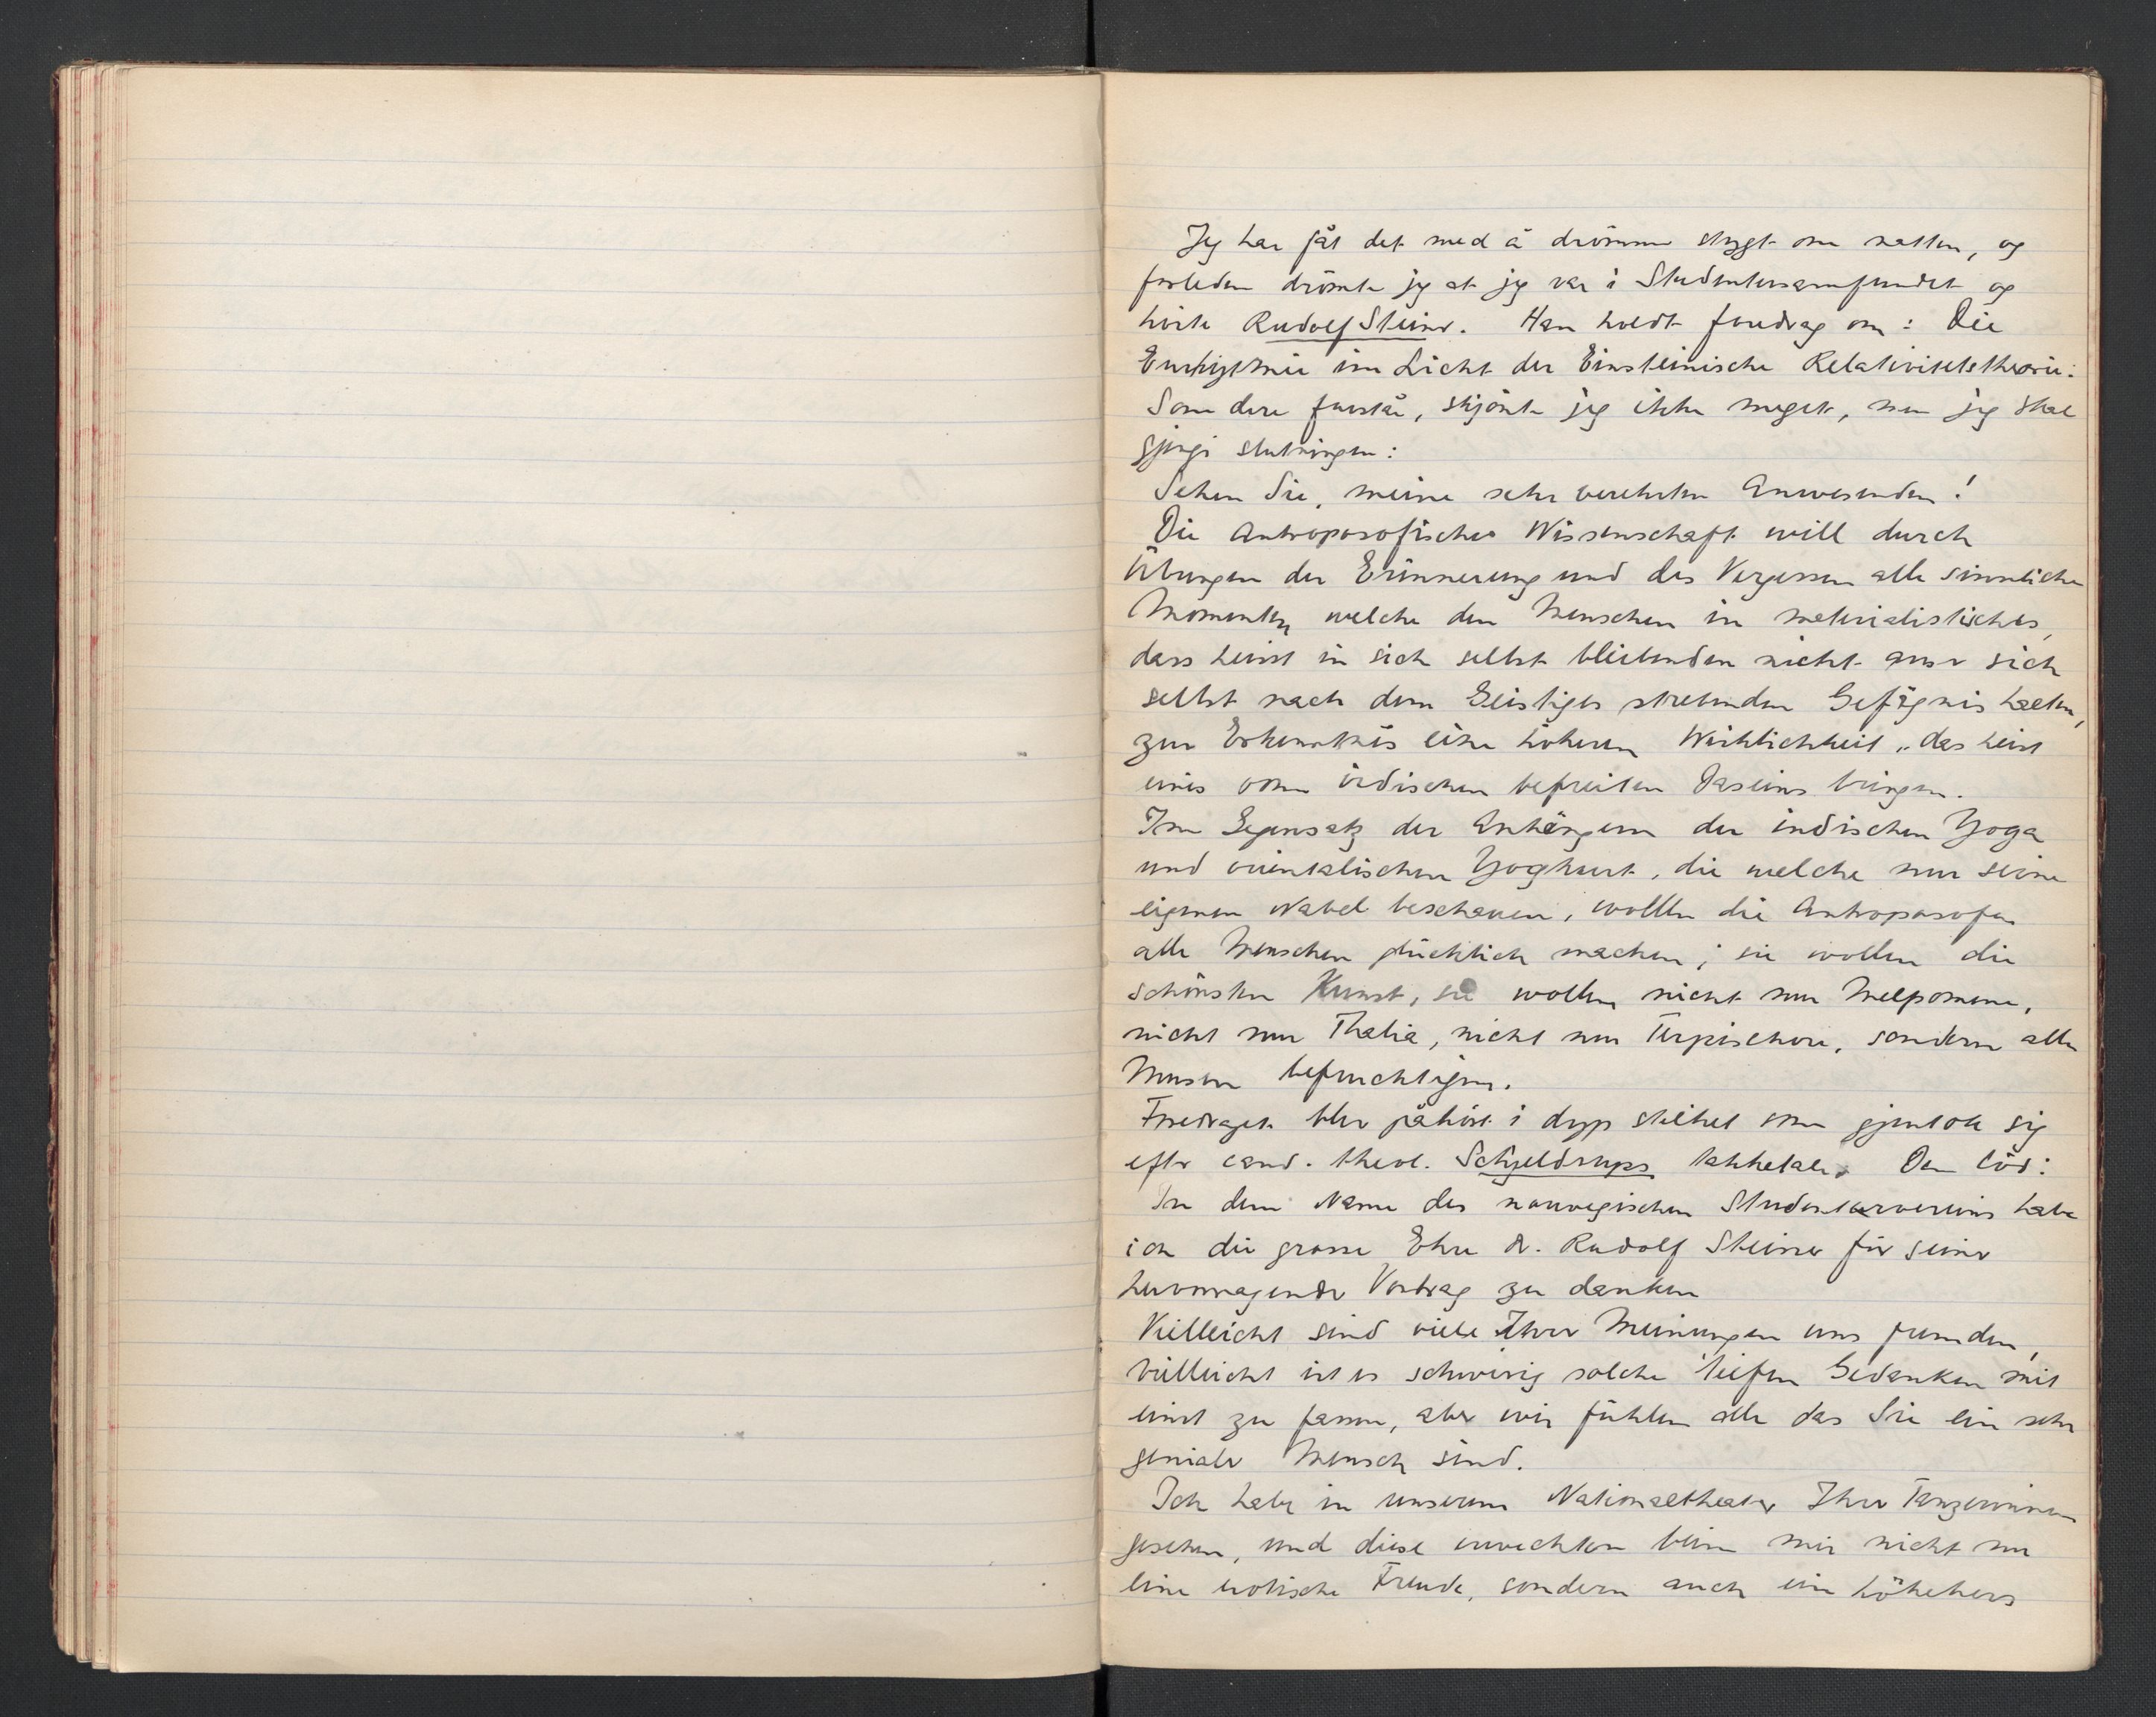 Jeg har fåt det med å drömme stygt om natten, og
forleden drömte jeg at jeg var i Studentersamfundet og
hörte Rudolf Steiner. Han holdt foredrag om: Die
Eurhytmie im Licht der Einsteinische Relativitetstheorie:
Som dere forstår, skjönte jeg ikke meget, men jeg skal
gjengi slutningen:
Sehen Sie, meine sehr verehrten Anwesenden!
Die Antroposofisches Wissenschaft will durch
Übungen der Erinnerung und des Vergessen alle sinnliche
Momenten welche den Menschen in materialistisches,
dass heisst in sich selbst bleibenden nicht auser sich
selbst nach dem Geistiges strebenden Gefägnis halten,
zur Erkenntnis eine höheren Wirklichkeit, das heist
eines vom irdischen befreiten Daseins bringen.
Im Gegensatz der Anhängern der indischen Yoga
und orientalischen Yoghurt, die welche nur seine
eigenen Nabel beschauen, wollen die Antroposofen
alle Menschen glücklich machen; sie wollen die
schönsten Kunst, sie wollen nicht nur Melpomene,
nicht nur Thalia, nicht nur Terpischore, sondern alle
Musen befruchtigen.
Foredraget blev påhört i dyp stilhet som gjentok sig
efter cand. theol. Schjeldrups takketale. Den löd:
In dem Name des norwegischen Studentervereins habe
ich die grosse Ehre dr. Rudolf Steiner für seiner
hervorragender Vortrag zu danken
Vielleicht sind viele Ihrer Meinungen uns fremden,
vielleicht ist es schwierig solche tiefen Gedanken mit
einst zu fassen, aber wir fühlen alle das Sie ein sehr
genialer Mensch sind.
Ich habe in unserem Nationaltheater Ihre Tanzerinnen
gesehen, und diese erweckten beim mir nicht nur
eine erotische Freude, sondern auch ein höheheres